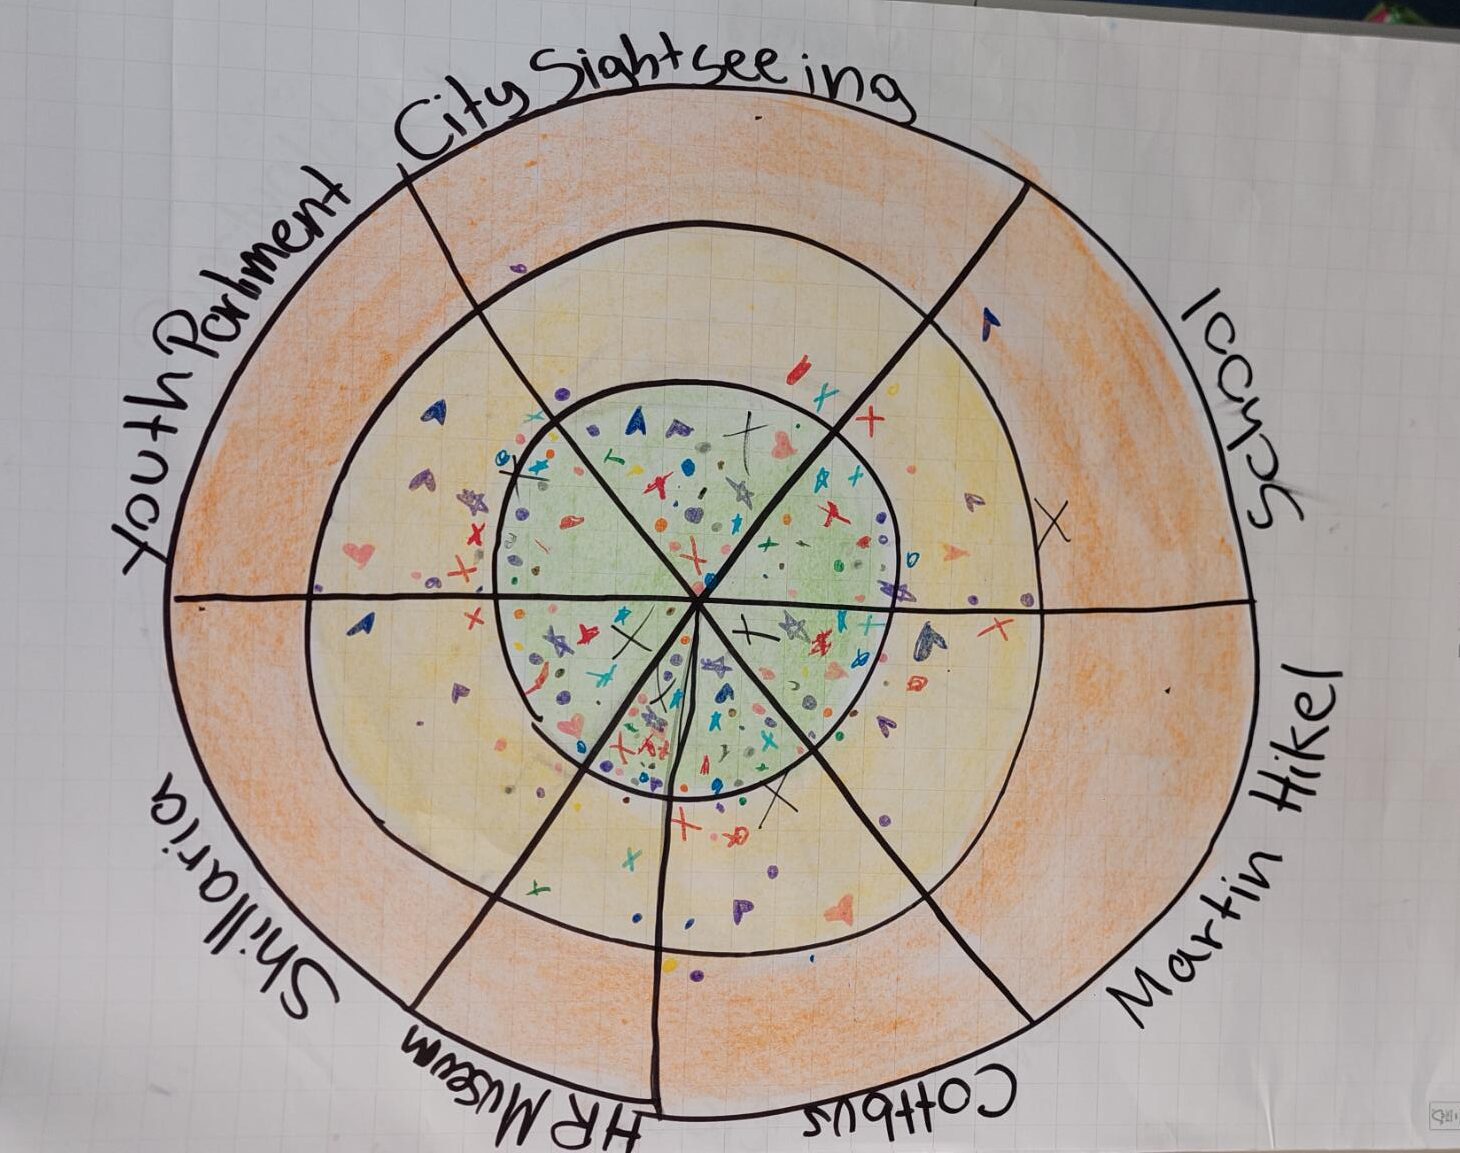 City Sightseeing
School
Martin Hikel
Cottbus
HR Museum
Shillaria
Youth Parliment